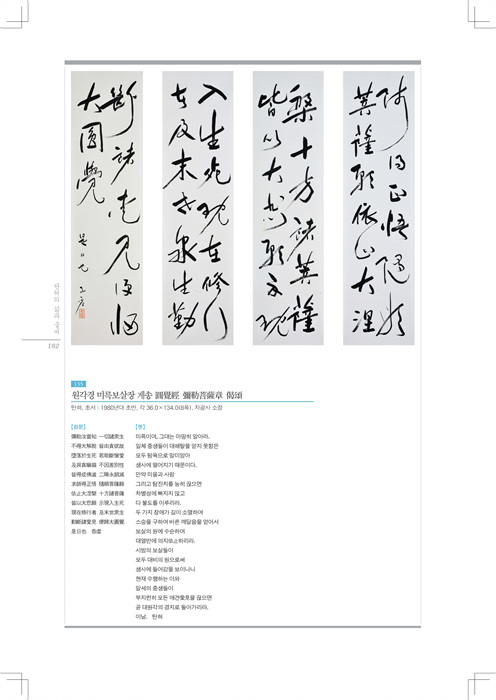 師得正悟 隨順
菩薩願 依止大涅
槃 十方諸菩薩
皆以大悲願 示現
入生死 現在修行
者 及末世衆生 勤
斷諸愛見 便歸
大圓覺
是日也
탄허의 삶과 숭어
182
135
원각경 미륵보살장 게송 圓覺經 彌勒菩薩章 偈頌
탄허, 초서 : 1980년대 초반, 각 36.0×134.0(8폭), 자광사 소장
[原文]
彌勒汝當知 一切諸衆生
不得大解脫 皆由貪欲故
墮落於生死 若能斷憎愛
及與貪瞋癡 不因差別性
皆得成佛道 二障永銷滅
求師得正悟 隨順菩薩願
依止大涅槃 十方諸菩薩
皆以大悲願 示現入生死
現在修行者 及末世衆生
勤斷諸愛見 便歸大圓覺
是日也 呑虛
[譯]
미륵이여, 그대는 마땅히 알아라.
일체 중생들이 대해탈을 얻지 못함은
모두 탐욕으로 말미암아
생사에 떨어지기 때문이다.
만약 미움과 사랑
그리고 탐진치를 능히 끊으면
차별성에 빠지지 않고
다 불도를 이루리라.
두 가지 장애가 길이 소멸하여
스승을 구하여 바른 깨달음을 얻어서
보살의 원에 수순하여
대열반에 의지依止하리라.
시방의 보살들이
모두 대비의 원으로써
생사에 들어감을 보이나니
현재 수행하는 이와
말세의 중생들이
부지런히 모든 애견愛見을 끊으면
곧 대원각의 경지로 들어가리라.
이날. 탄허